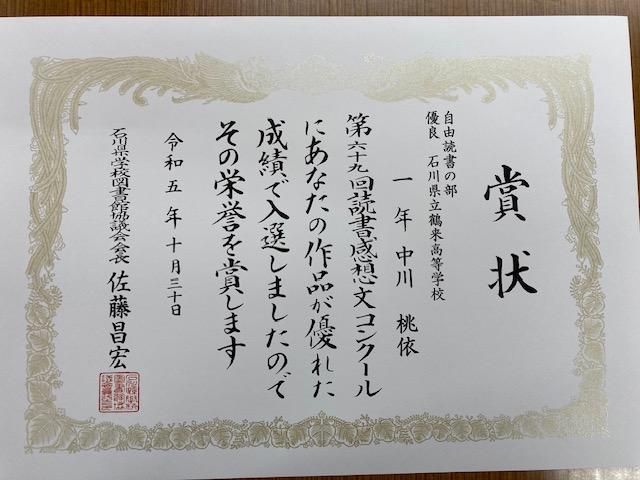 賞状
自由読書の部
優良 石川県立鶴来高等学校
一年 中川 桃依
第六十九回読書感想文コンクール
にあなたの作品が優れた
成績で入選しましたので
その栄誉を賞します
令和五年十月三十日
石川県学校図書館協議会会長 佐藤昌宏